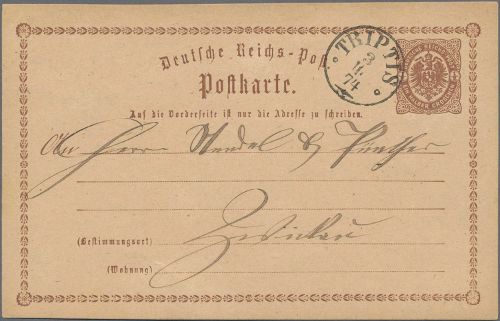 Deutsche Reichs-Post
Postkarte.
TRIPTIS
3
11.
74
Auf die Vorderseite ist nur die Adresse zu schreiben.
An Herrn & Günther
Zwickau
(Bestimmungsort)
(Wohnung)